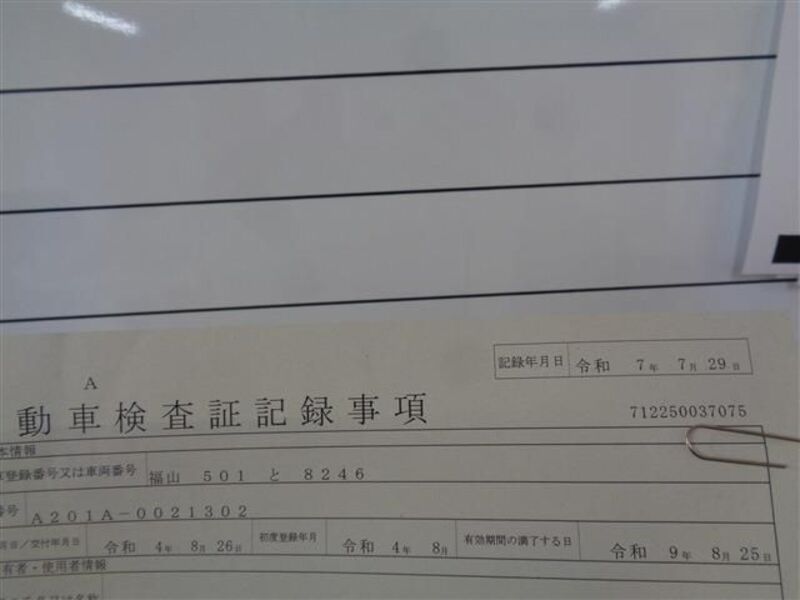 記録年月日 令和 7年 7月 29日
A
動車検査証記録事項
712250037075
本情報
登録番号又は車両番号 福山 501 と 8246
番号 A201A-0021302
月日/交付年月日 令和 4年 8月 26日 初度登録年月 令和 4年 8月 有効期間の満了する日 令和 9年 8月 25日
有者・使用者情報